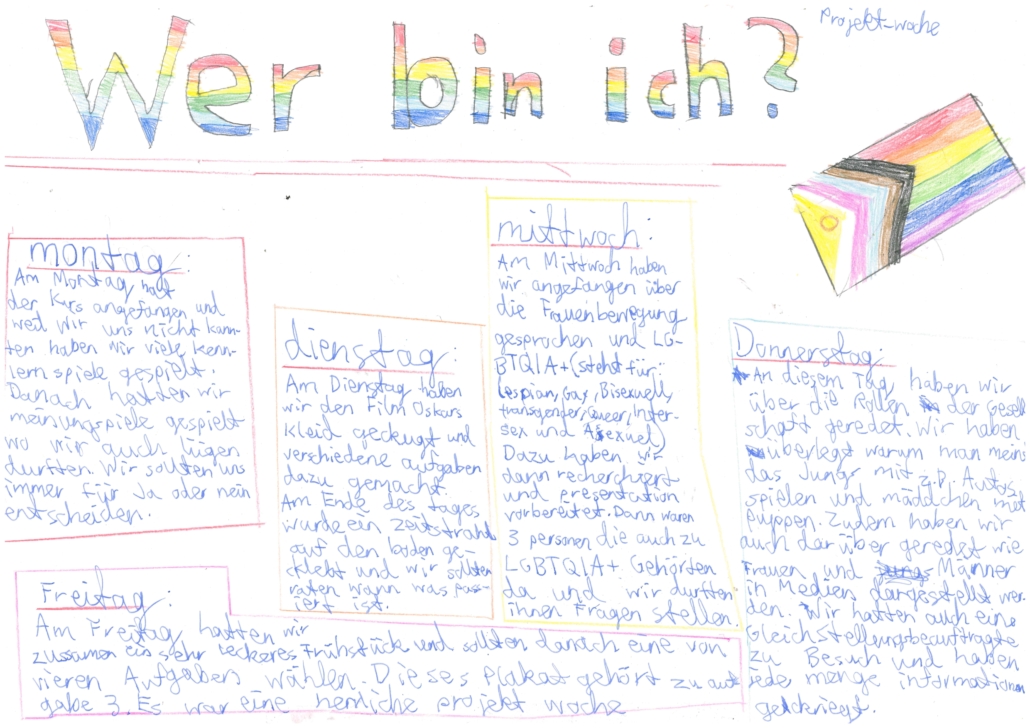 Projekt-woche
Wer bin ich?
montag:
Am Montag hat
der Kurs angefangen und
weil wir uns nicht kann-
ten haben wir viele kenn-
lern spiele gespielt.
Danach hatten wir
meinungspiele gespielt
wo wir auch lügen
durften. Wir sollten uns
immer für Ja oder nein
entscheiden.
dienstag:
Am Dienstag haben
wir den Film Oskars
Kleid geckugt und
verschiedene aufgaben
dazu gemacht.
Am Ende des tages
wurde ein zeitstrahl
auf den boden ge-
klebt und wir sollten
raten wann was pas-
iert ist.
mittwoch:
Am Mittwoch haben
wir angefangen über
die Frauenbewegung
gesprochen und LG-
BTQIA+ (steht für:
Lespian, Gay, Bisexuell,
transgender, Queer, Inter-
sex und Asexuel)
Dazu haben wir
dann recherchiert
und presentation
vorbereitet. Dann waren
3 personen die auch zu
LGBTQIA+ Gehörten
da und wir durften
ihnen Fragen stellen
Donnerstag:
An diesem Tag haben wir
über die Rollen der Gesell
schaft geredet. Wir haben
überlegt warum man meins
das Jungs mit z.B. Autos
spielen und mädchen mit
puppen. Zudem haben wir
auch darüber geredet wie
Frauen und Männer
in Medien dargesstellt wer-
den. Wir hatten auch eine
Gleichstellungsbeauftragte
zu Besuch und haben
jede menge informationen
gekriegt.
Freitag:
Am Freitag hatten wir
zusammen ein sehr leckeres Frühstück und sollten danach eine von
vieren Aufgaben wählen. Dieses Plakat gehört zu auf
gabe 3. Es war eine projekt woche